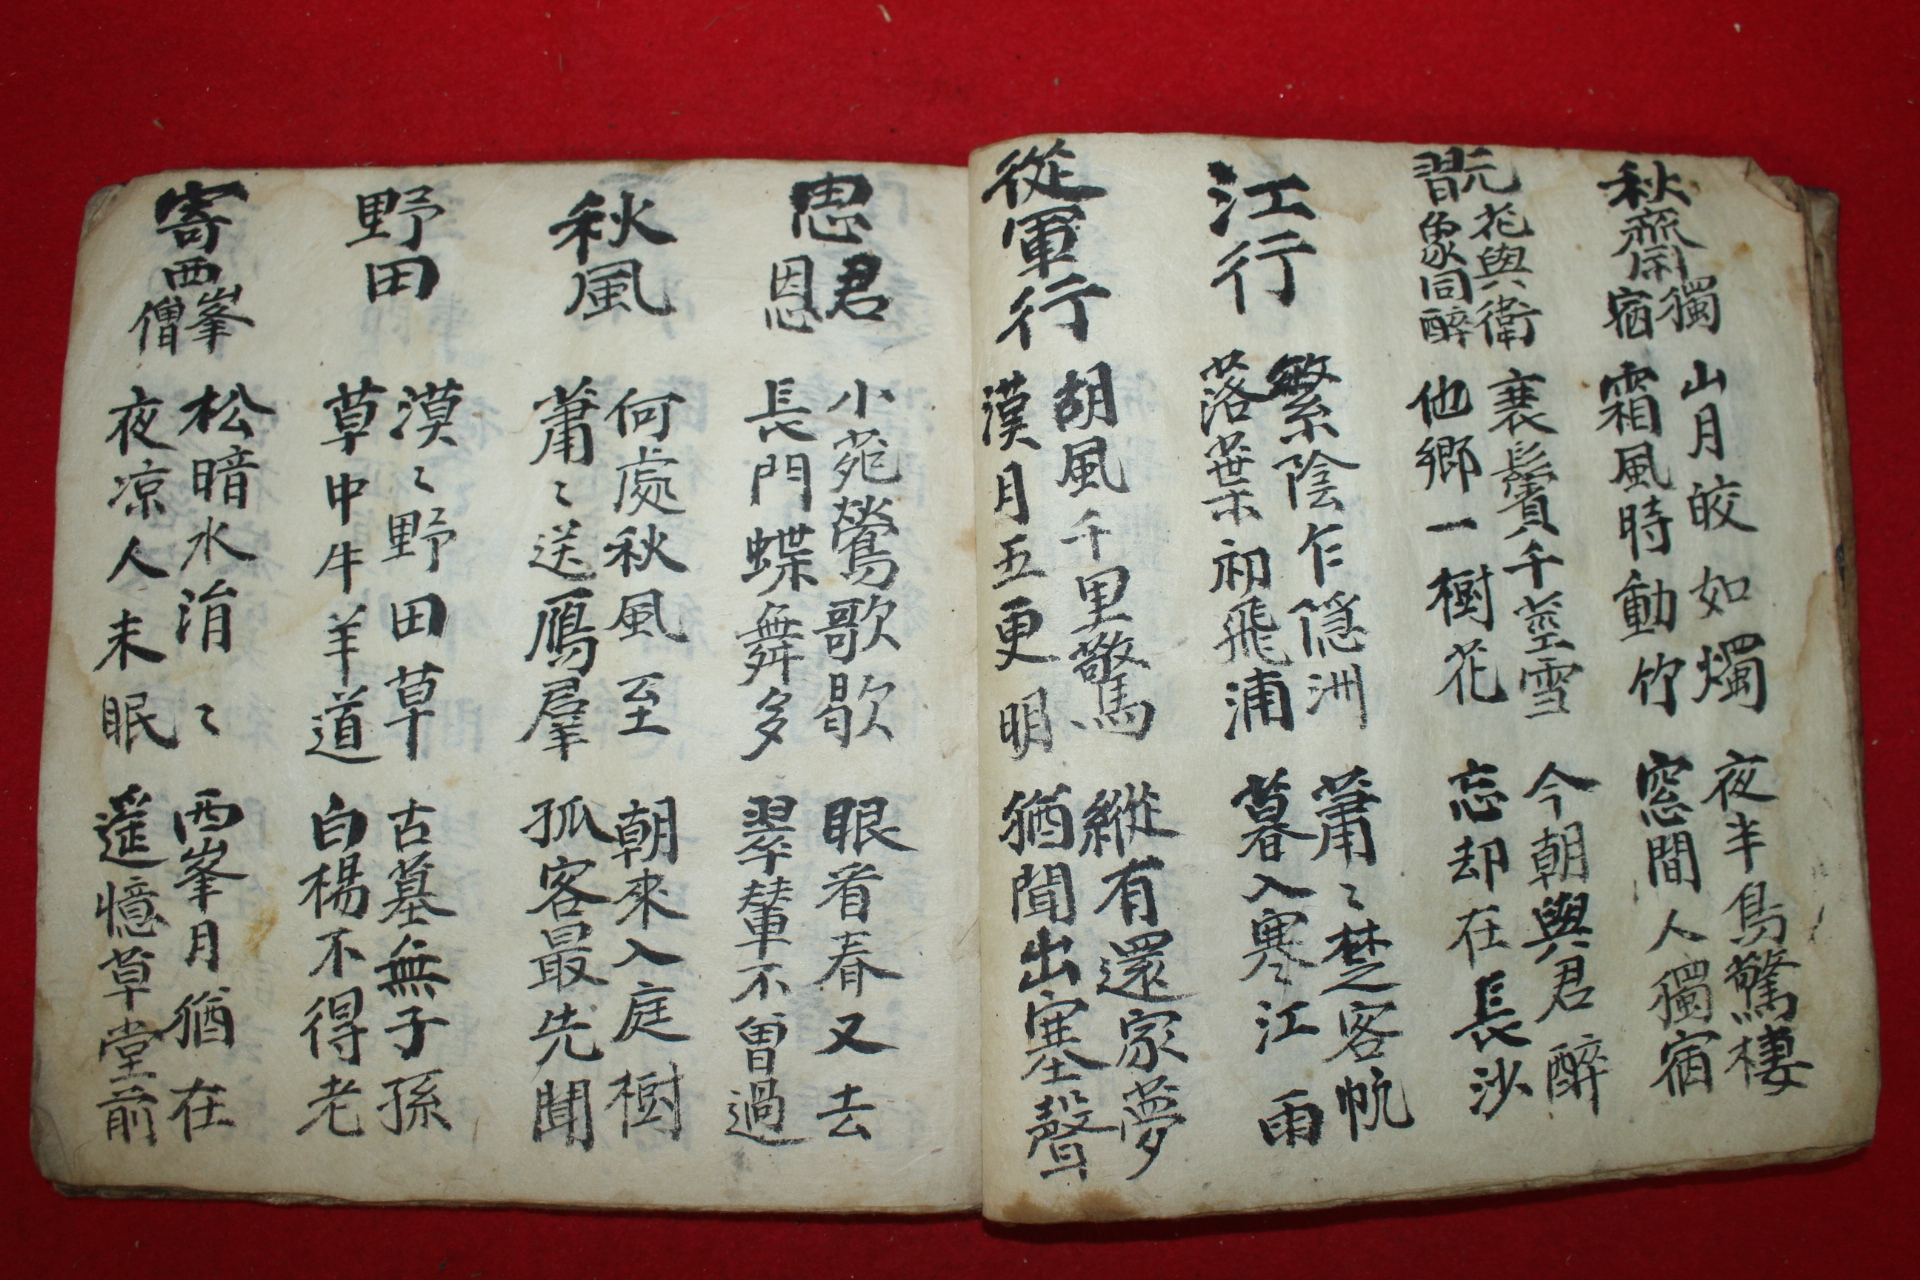 秋齋獨宿
山月皎如燭
霜風時動竹
夜半鳥驚棲
窓間人獨宿
翫花與衛象同醉
衰鬢千莖雪
他鄉一樹花
今朝與君醉
忘却在長沙
江行
繁陰乍隱洲
落葉初飛浦
蕭〻楚客帆
暮入寒江雨
從軍行
胡風千里驚
漢月五更明
縱有還家夢
猶聞出塞聲
思君恩
小苑鶯歌歇
長門蝶舞多
眼看春又去
翠輦不曾過
秋風
何處秋風至
蕭〻送鴈羣
朝來入庭樹
孤客最先聞
野田
漠〻野田草
草中牛羊道
古墓無子孫
白楊不得老
寄西峯僧
松暗水涓〻
夜凉人未眠
西峯月猶在
遥憶草堂前